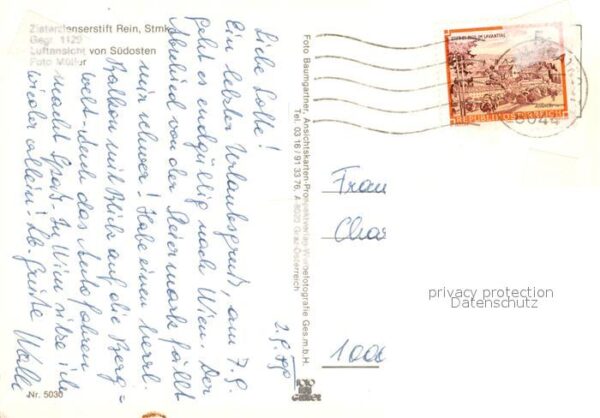 Zisterzienserstift Rein, Stmk.
Gegr. 1129
Luftansicht von Südosten
Foto Müller
Liebe Lotte!
Ein letzter Urlaubsgruß, am 7.9.
geht es endgültig nach Wien. Der
Abschied von der Steiermark fällt
mir schwer! Habe einen herrl.
Balkon mit Blick auf die Berg=
welt. Auch das Autofahren
macht Spaß. In Wien sitze ich
wieder allein! Lb. Grüße Walli
2.9.
Nr. 5030
Foto Baumgartner, Ansichtskarten-Prospektverlag-Werbefotografie Ges.m.b.H.
Tel. 03 16/91 33 76, A-8020 Graz-Österreich
FOTO
BAUM
GARTNER
5
REPUBLIK ÖSTERREICH
8044
Frau
Char
100
privacy protection
Datenschutz